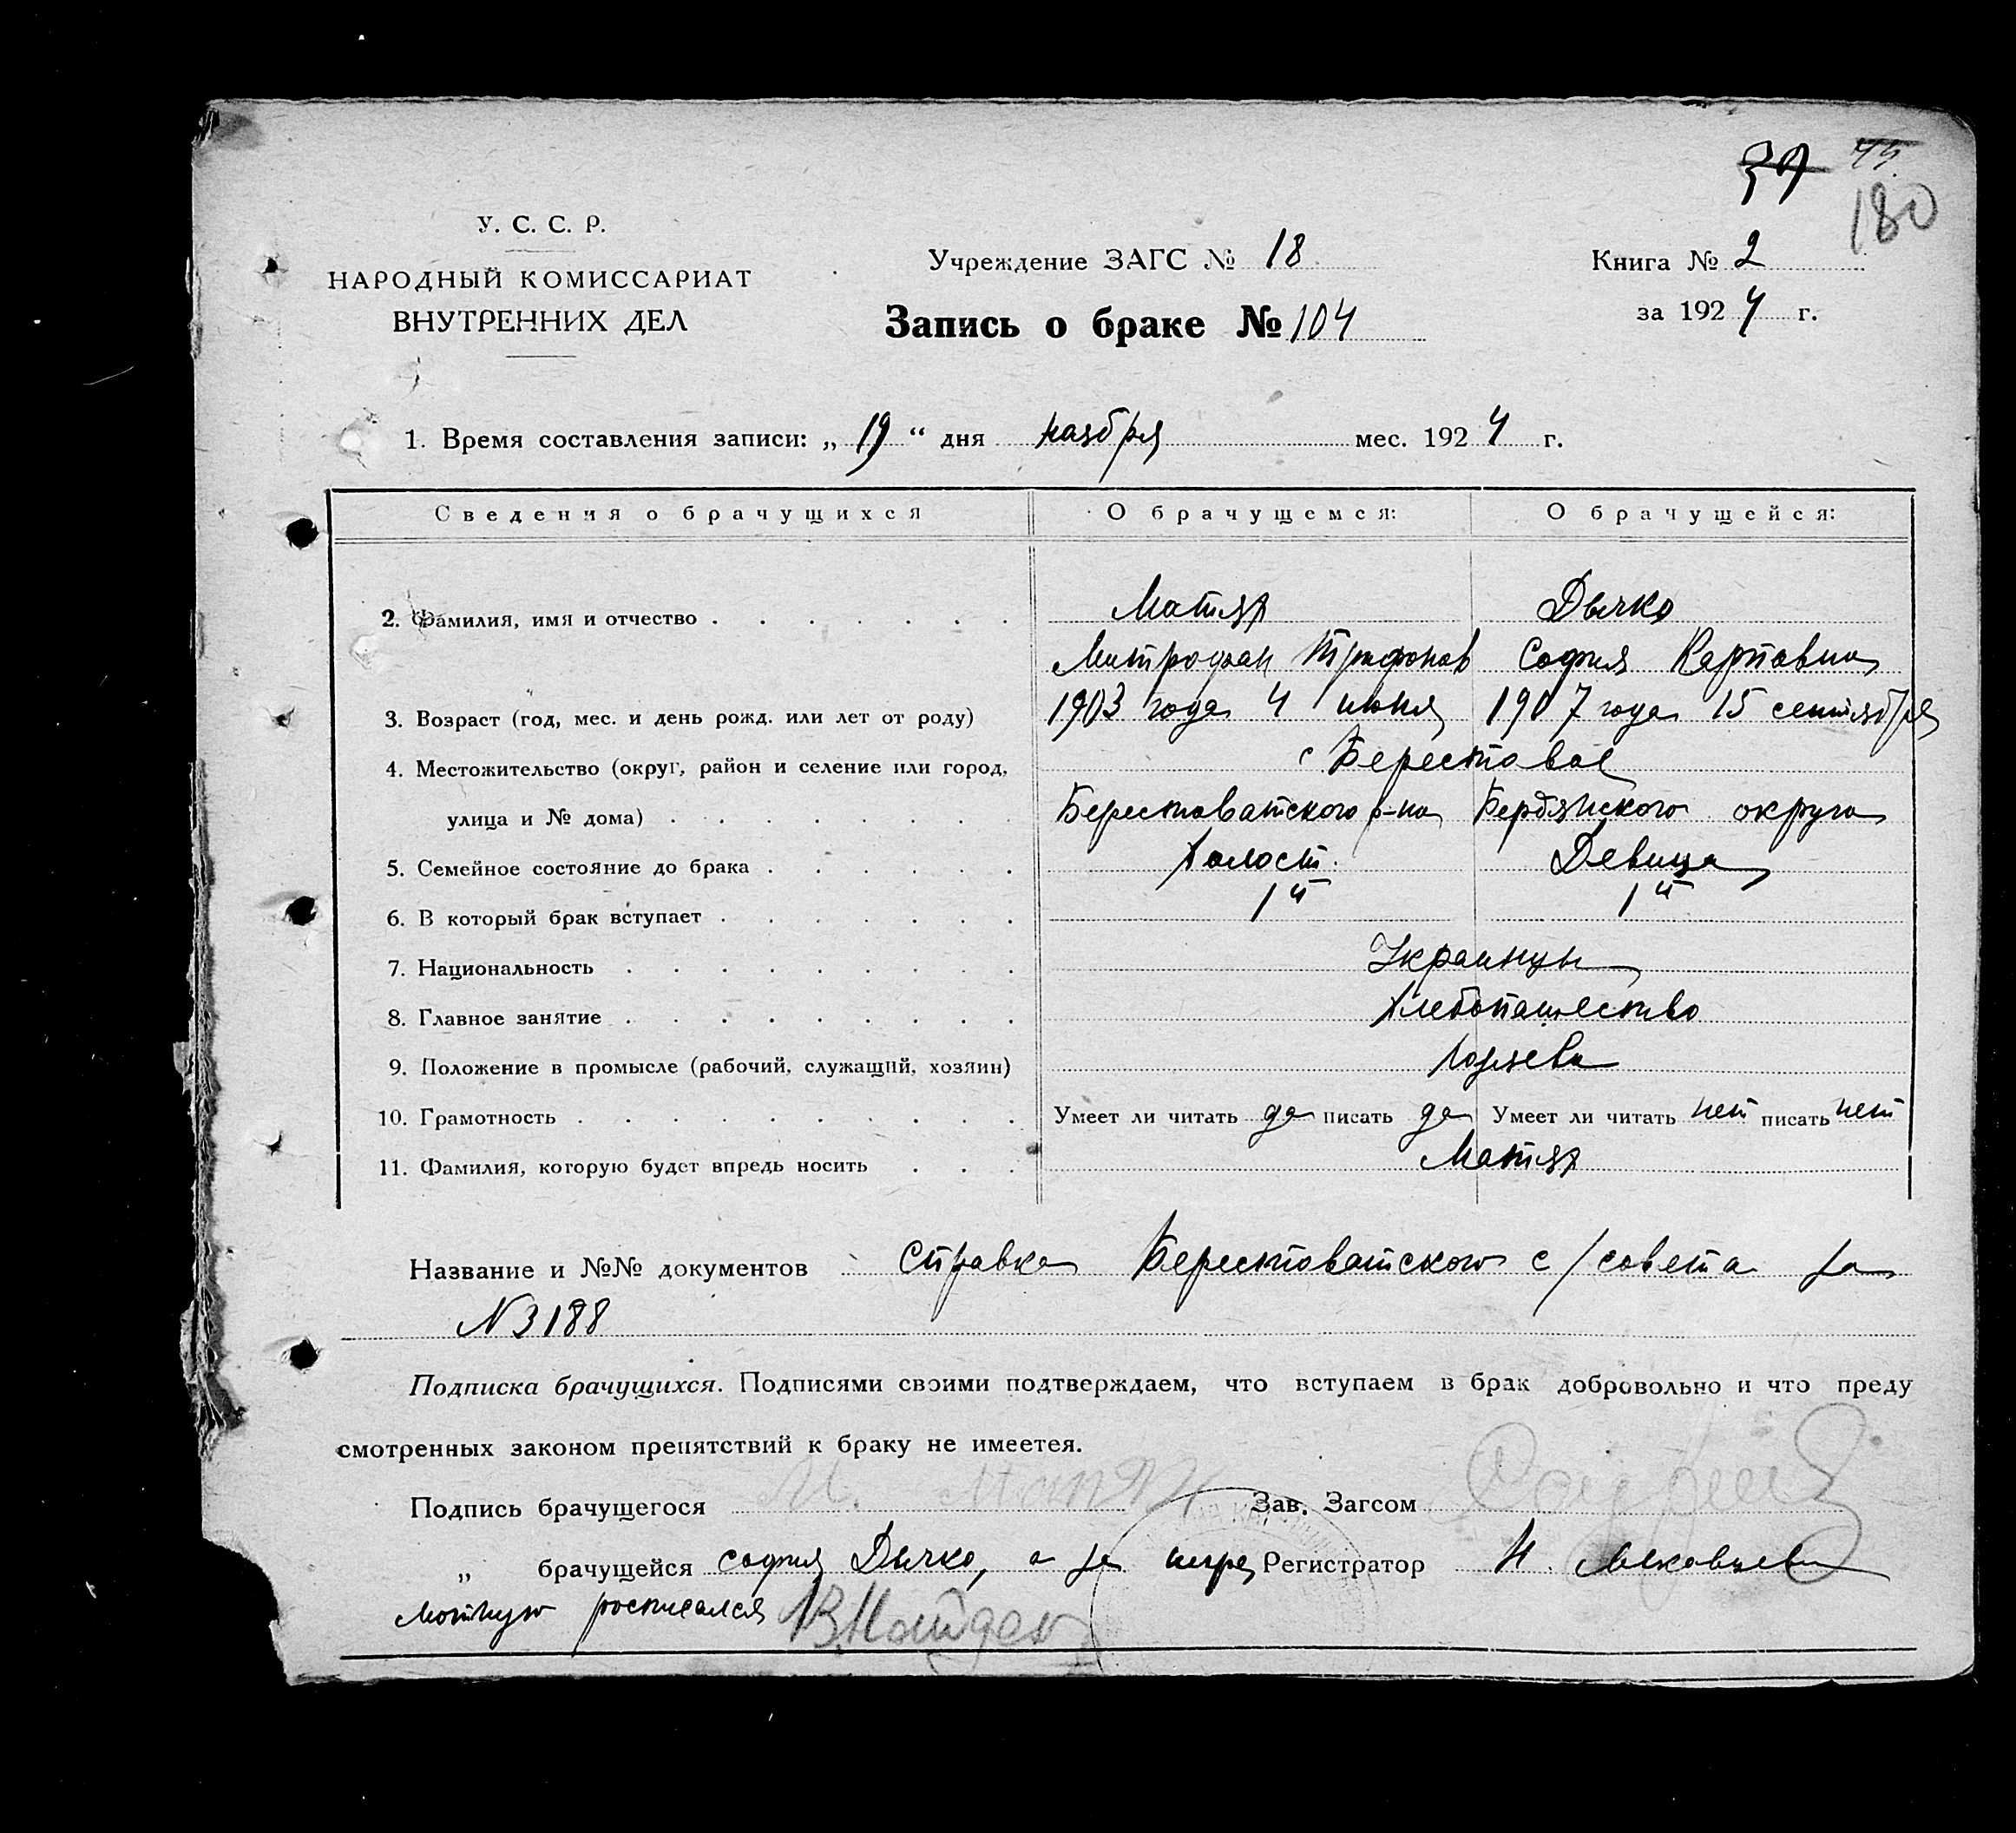 39 45
180
У. С. С. Р.
НАРОДНЫЙ КОМИССАРИАТ
ВНУТРЕННИХ ДЕЛ
Учреждение ЗАГС № 18
Запись о браке № 104
Книга № 2
за 1924 г.
1. Время составления записи: „ 19 “ дня ноября мес. 1924 г.
Сведения о брачущихся О брачущемся: О брачущейся:
Матяя Дычко
2. Фамилия, имя и отчество
Митрофан Трифонов София Карповна
3. Возраст (год, мес. и день рожд. или лет от роду) 1903 года 4 июня 1907 года 15 сентября
4. Местожительство (округ, район и селение или город, с Берестовое
улица и № дома) Берестоватского р-на Бердянского округа
5. Семейное состояние до брака Холост. Девица
6. В который брак вступает 1й 1й
7. Национальность Украинцы
8. Главное занятие Хлебопашество
9. Положение в промысле (рабочий, служащий, хозяин) Хозяева
10. Грамотность Умеет ли читать да писать да Умеет ли читать нет писать нет
11. Фамилия, которую будет впредь носить Матяя
Название и №№ документов Справка Берестоватского с/совета за
N 3188
Подписка брачущихся. Подписями своими подтверждаем, что вступаем в брак добровольно и что преду
смотренных законом препятствий к браку не имеетея.
Подпись брачущегося М. Зав. Загсом
„ брачущейся София Дычко, а за негра Регистратор Н.
мотную росписался В. Найден